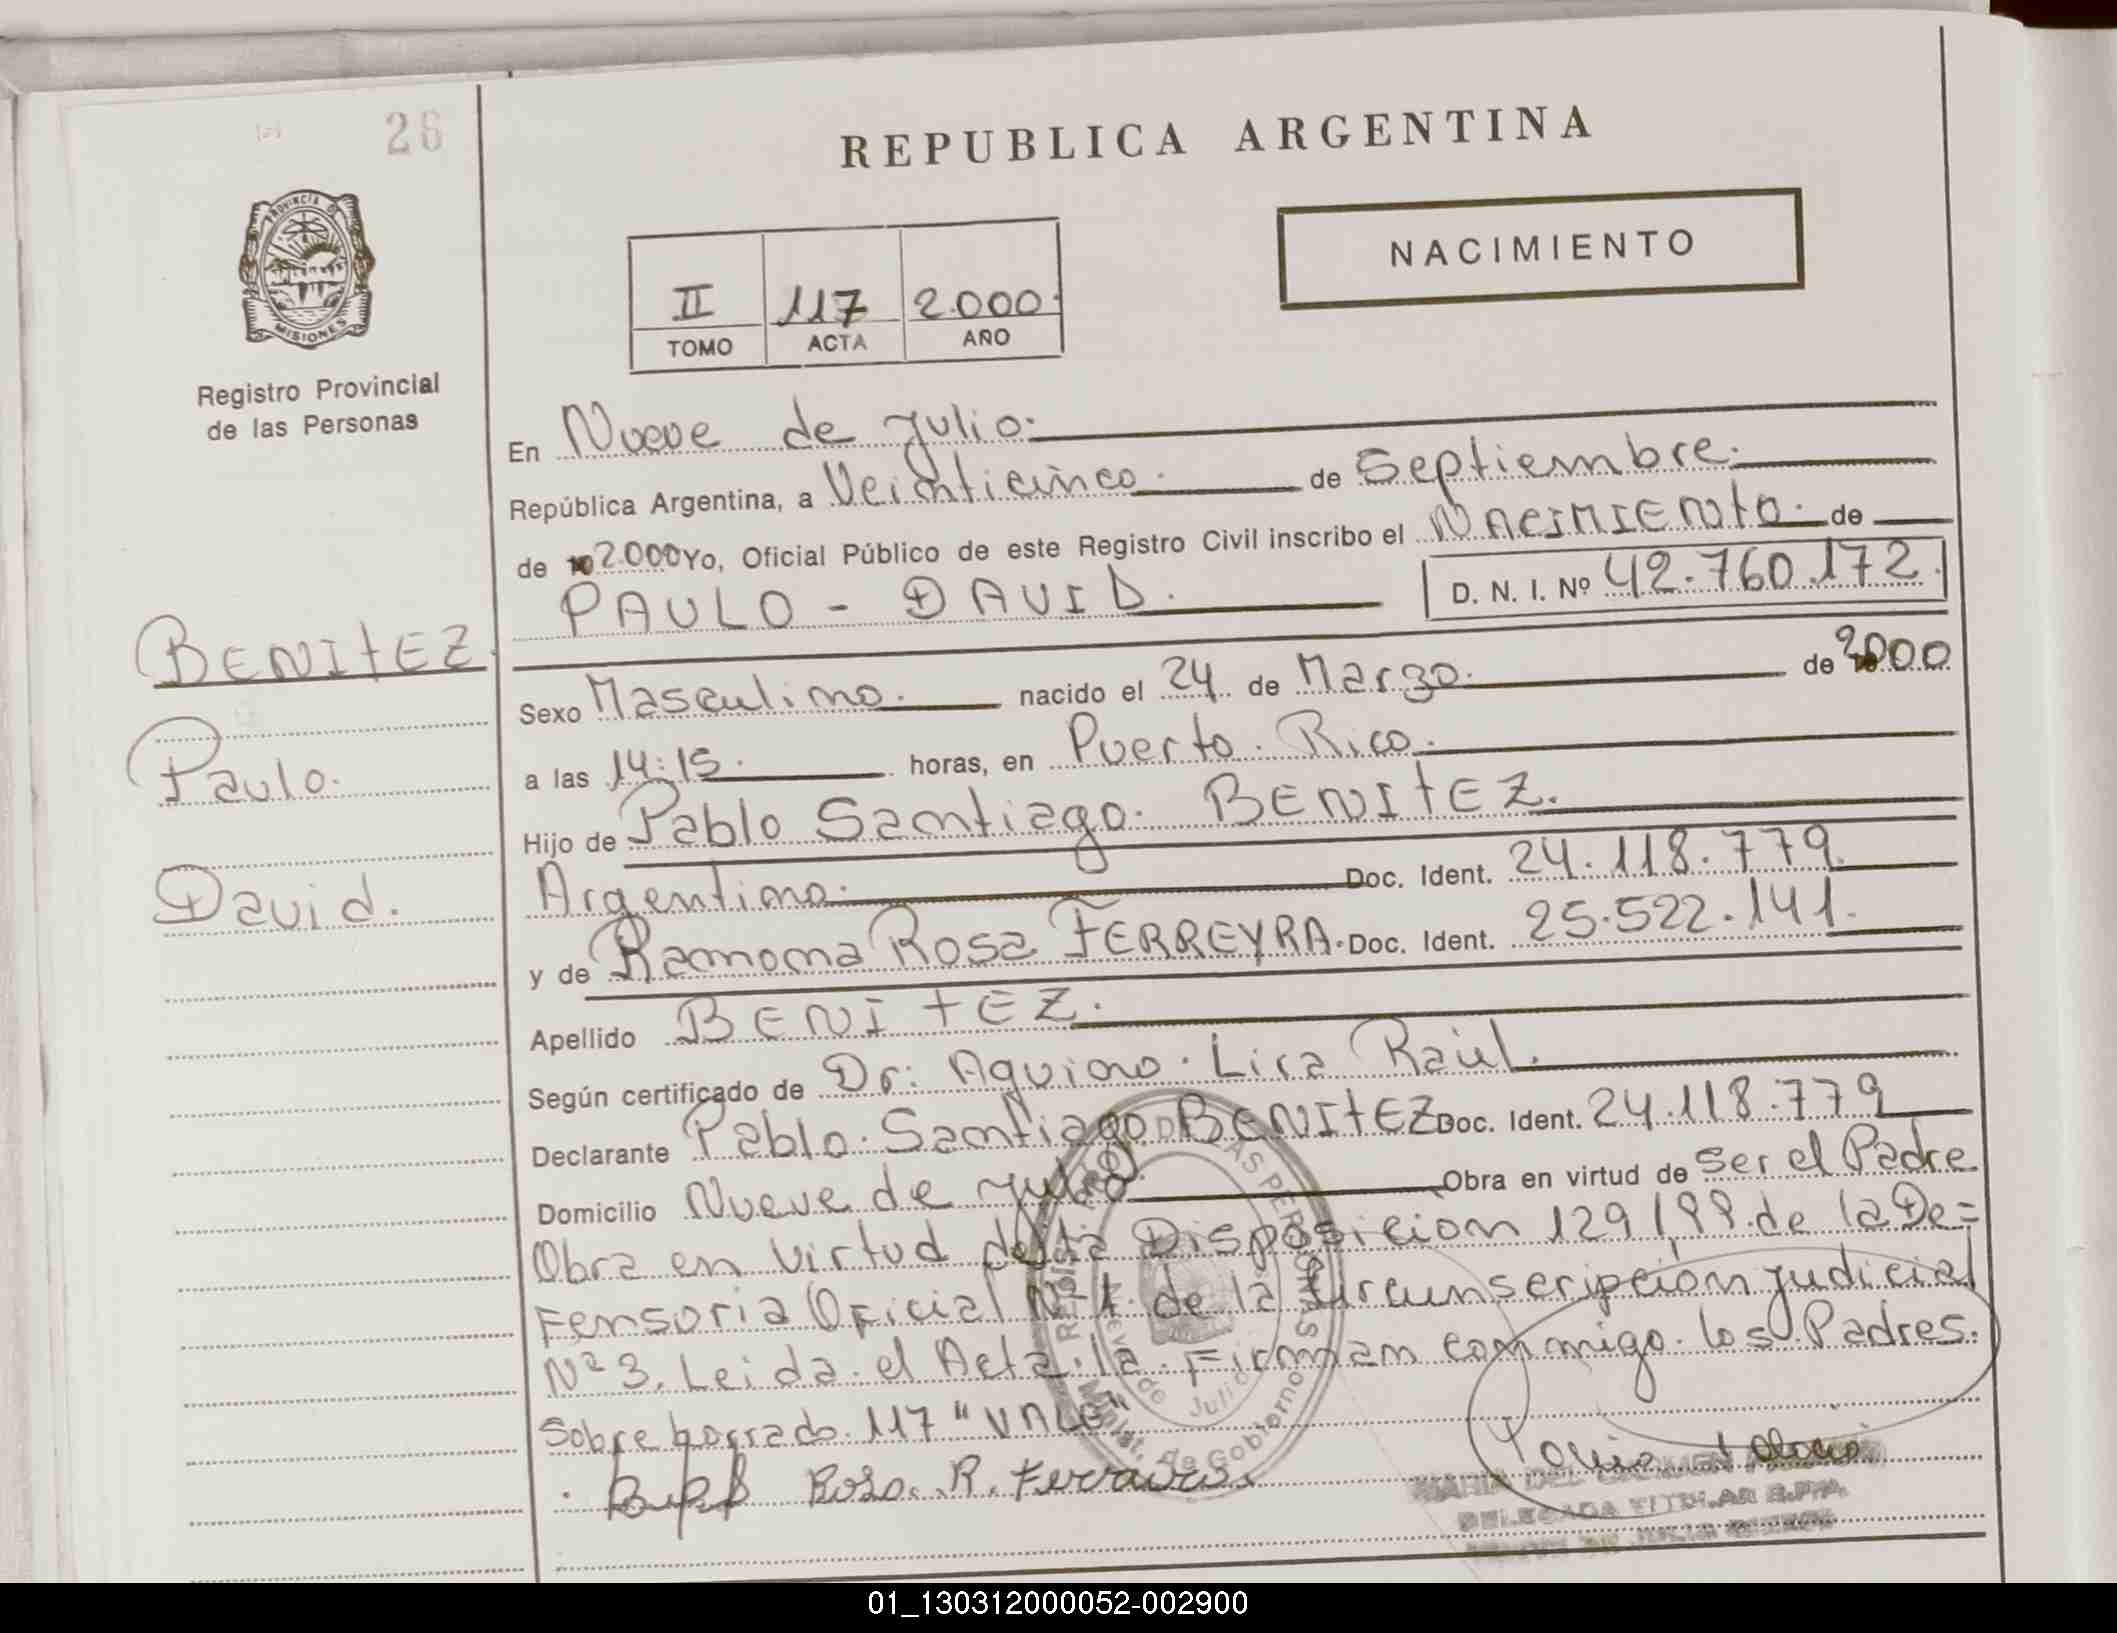 26
REPUBLICA ARGENTINA
NACIMIENTO
PROVINCIA DE
MISIONES
Registro Provincial
de las Personas
II 117 2.000.
TOMO ACTA AÑO
En Nueve de Julio.
República Argentina, a Veinticinco. de Septiembre.
de 2.000 Yo, Oficial Público de este Registro Civil inscribo el Nacimiento. de
PAULO - DAVID. D. N. I. Nº 42.760.172.
BENITEZ.
Paulo.
David.
Sexo Masculino. nacido el 24 de Marzo. de 2000
a las 14:15. horas, en Puerto. Rico.
Hijo de Pablo Santiago. BENITEZ.
Argentino. Doc. Ident. 24.118.779.
y de Ramona Rosa FERREYRA. Doc. Ident. 25.522.141.
Apellido BENITEZ.
Según certificado de Dr: Aquino. Lira Raúl.
Declarante Pablo. Santiago BENITEZ Doc. Ident. 24.118.779
Domicilio Nueve de Julio. Obra en virtud de ser el Padre
Obra en virtud de la Disposicion 129/99. de la De=
Fensoria Oficial Nº 1. de la Circunscripción Judicial
Nº 3. Leida. el Acta. la. Firman conmigo. los Padres.
Sobre borrado. 117 "VALE"
Rosa. R. Ferreira
MARIA DEL CARMEN
DELEGADA TITULAR R.P.P.
01_130312000052-002900